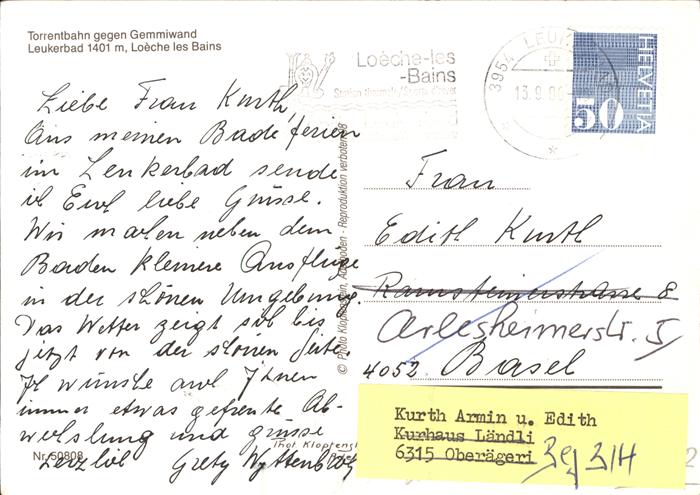 Torrentbahn gegen Gemmiwand
Leukerbad 1401 m, Loèche les Bains
Loèche-les
-Bains
3954 LEUK
13.9.
HELVETIA
50
Liebe Frau Kurth,
Aus meinen Badeferien
im Leukerbad sende
ich Euch liebe Grüsse.
Wir machen neben dem
Baden kleinere Ausflüge
in der schönen Umgebung.
Das Wetter zeigt sich bis
jetzt von der schönen Seite.
Ich wünsche auch Ihnen
immer etwas gefreute Ab-
wechslung und grüsse
herzlich Grety Wyttenbach
Nr. 50808
© Photo Klopfenstein, Adelboden - Reproduktion verboten
Frau
Edith Kurth
Ramsteinerstrasse 8
Arlesheimerstr. 5
4052 Basel
Kurth Armin u. Edith
Kurhaus Ländli
6315 Oberägeri